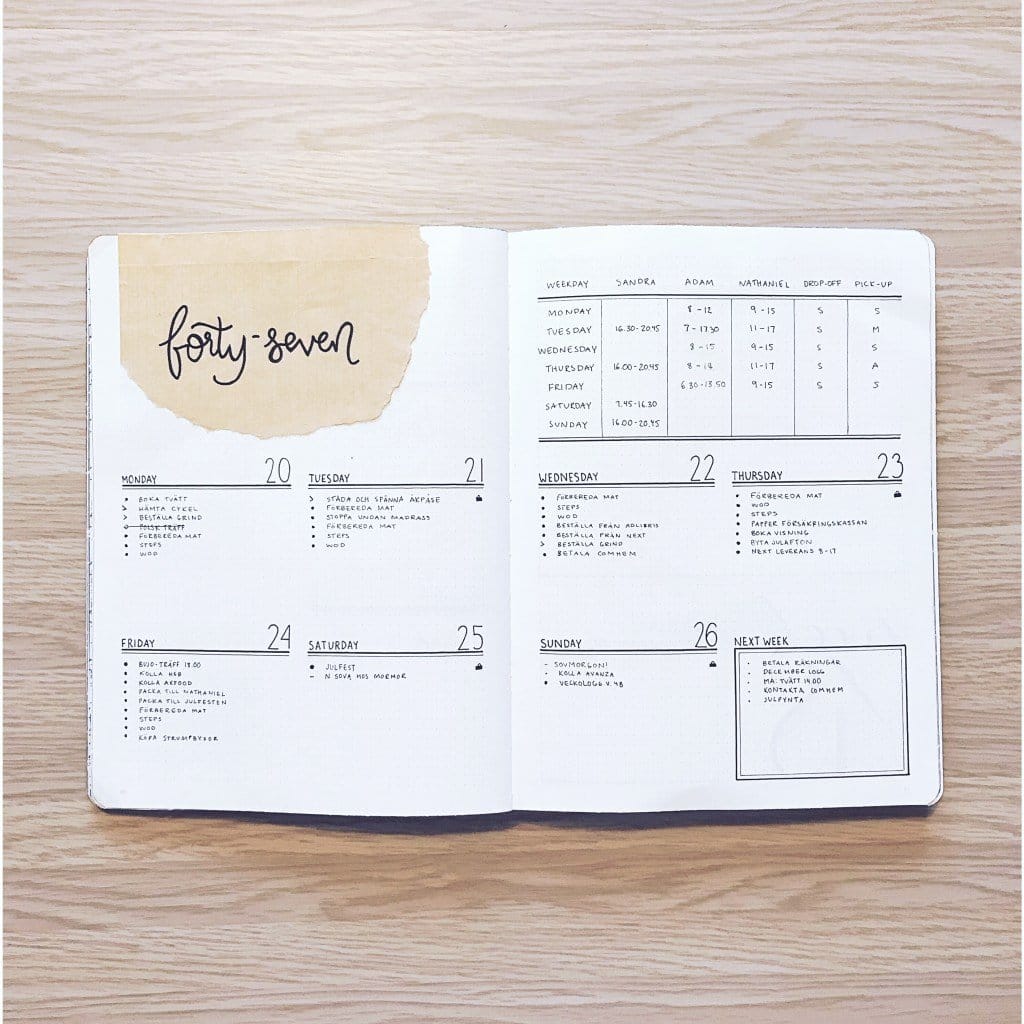 forty-seven
MONDAY 20
BOKA TVÄTT
HÄMTA CYKEL
BESTÄLLA GRIND
POLSK TRÄFF
FÖRBEREDA MAT
STEPS
WOD
TUESDAY 21
STÄDA OCH SPÄNNA ÅKPÅSE
FÖRBEREDA MAT
STOPPA UNDAN MADRASS
FÖRBEREDA MAT
STEPS
WOD
FRIDAY 24
BUJO-TRÄFF 18.00
KOLLA HEB
KOLLA AXFOOD
PACKA TILL NATHANIEL
PACKA TILL JULFESTEN
FÖRBEREDA MAT
STEPS
WOD
KÖPA STRUMPBYXOR
SATURDAY 25
JULFEST
- N SOVA HOS MORMOR
WEEKDAY SANDRA ADAM NATHANIEL DROP-OFF PICK-UP
MONDAY 8-12 9-15 S S
TUESDAY 16.30-20.45 7-17.30 11-17 S M
WEDNESDAY 8-15 9-15 S S
THURSDAY 16.00-20.45 8-14 11-17 S A
FRIDAY 6.30-13.50 9-15 S S
SATURDAY 7.45-16.30
SUNDAY 16.00-20.45
WEDNESDAY 22
FÖRBEREDA MAT
STEPS
WOD
BESTÄLLA FRÅN ADLIBRIS
BESTÄLLA FRÅN NEXT
BESTÄLLA GRIND
BETALA COMHEM
THURSDAY 23
FÖRBEREDA MAT
WOD
STEPS
PAPPER FÖRSÄKRINGSKASSAN
BOKA VISNING
BYTA JULAFTON
NEXT LEVERANS 8-17
SUNDAY 26
- SOVMORGON!
- KOLLA AVANZA
VECKOLOGG V. 48
NEXT WEEK
BETALA RÄKNINGAR
DECEMBER LOGG
MA: TVÄTT 14.00
KONTAKTA COMHEM
JULPYNTA